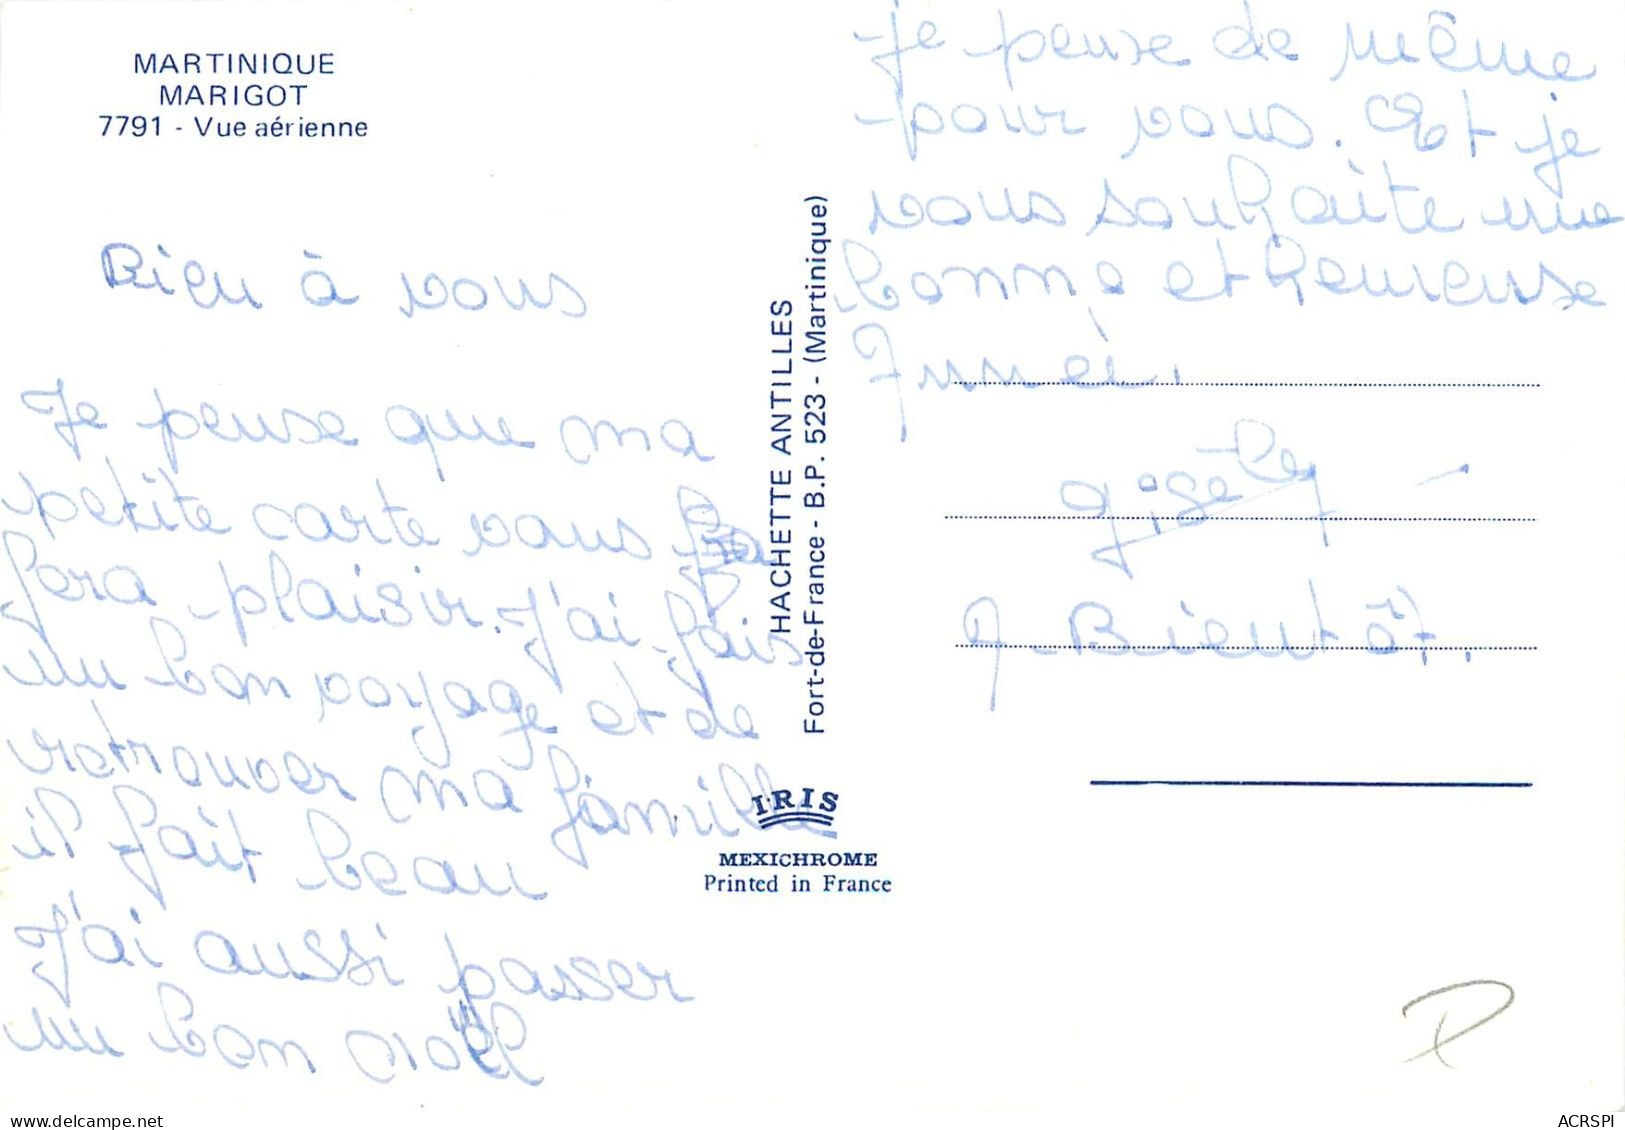 MARTINIQUE
MARIGOT
7791 - Vue aérienne
Bien à vous
Je pense que ma
petite carte vous
fera plaisir. J'ai fais
un bon voyage et de
retrouver ma famille
il fait beau
J'ai aussi passer
un bon noël
HACHETTE ANTILLES
Fort-de-France - B.P. 523 - (Martinique)
IRIS
MEXICHROME
Printed in France
Je pense de même
pour vous. Et je
vous souhaite une
bonne et heureuse
Année.
gisèle
A Bientôt.
delcampe.net
ACRSPI